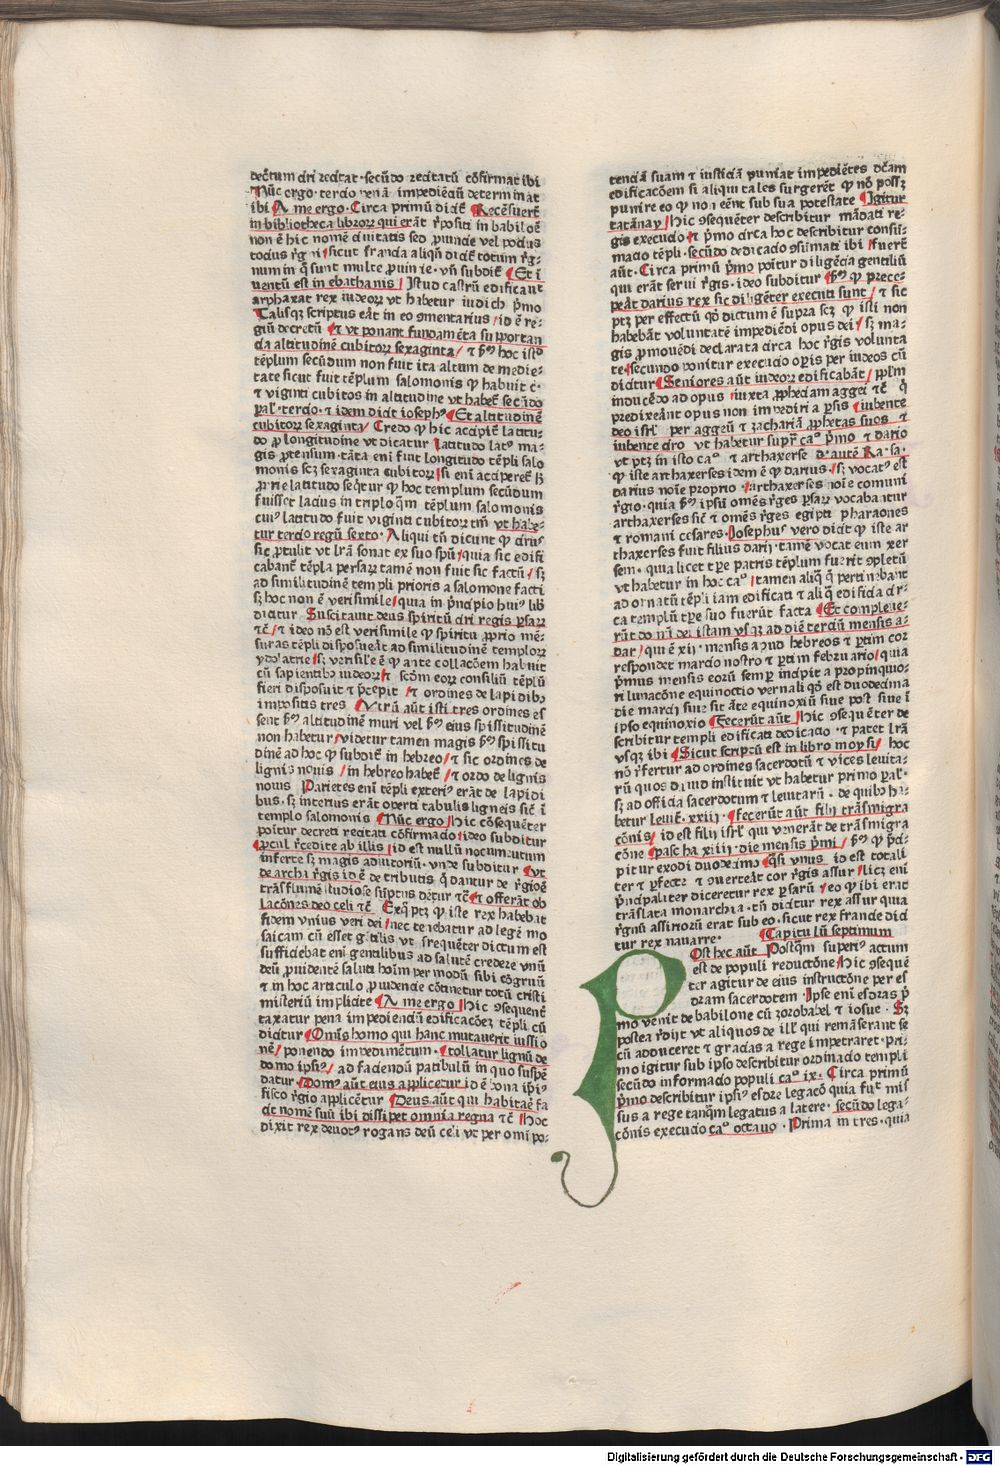 decretum ciri recitat · secūdo recitatū cōfirmat ibi
Nūc ergo · tercio penā impediēciū determinat
ibi A me ergo · Circa primū dicit Recēsuerūt
in bibliotheca librorꝝ qui erāt rꝛpositi in babiloē
non ē hic nomē civitatis sed prouincie vel pocius
tocius rꝛgni sicut francia aliqn̄ dicit totum rꝛg-
num in q̄ sunt multe prouincie · vn̄ subdit Et ī
uentū est in ebathanis Istud castrū edificauit
arphaxat rex medorꝝ vt habetur iudich pꝛmo
Talisqꝫ scriptus erāt in eo ꝯmentarius / id ē re-
giū decretū Et vt ponant fundamēta supportan
cia altitudinē cubitorꝝ sexaginta / ⁊ sm̄ hoc istd
tēplum secūdum non fuit ita altum de medie-
tate sicut fuit tēplum salomonis ꝙ habuit c ·
⁊ viginti cubitos in altitudine vt habet secūdo
pal · tercio · ⁊ idem dicit iosephꝰ Et altitudinē
cubitorꝝ sexaginta / Credo ꝙ hic accipit latitu-
do pro longitudine vt dicatur latitudo latꝰ ma-
gis protensum · tāta eni fuit longitudo tēpli salo
monis scꝫ sexaginta cubitorꝝ si eni acciperet
proprie latitudo seqtur ꝙ hoc templum secūdum
fuisset lacius in triplo q̄m templum salomonis
cuiꝰ latitudo fuit viginti cubitorꝝ tm̄ vt habe-
tur tercio regū sexto · Aliqui tn̄ dicunt ꝙ cirus
sic protulit vt lrā sonat ex suo spū / quia sic edifi
cabant tēpla persarꝝ tamē non fuit sic factū / sꝫ
ad similitudinē templi prioris a salomone facti
sꝫ hoc non ē verisimile / quia in pꝛncipio huiꝰ libri
dicitur Suscitauit deus spiritū ciri regis persarꝝ
⁊c̄ / ⁊ ideo nō est verisimile ꝙ spiritu proprio mē-
suras tēpli disposueāt ad similitudinē templorꝝ
ydolatrie / sꝫ verisile ē ꝙ ante collacōem habuit
cū sapientibꝰ iudeorꝝ ⁊ scdm eorꝝ consiliū tēplū
fieri disposuit ⁊ pꝛcepit / ⁊ ordines de lapidibꝰ
impositis tres Vtrū aūt isti tres ordines es
sent sm̄ altitudinē muri vel sm̄ eius spissitudinē
non habetur / videtur tamen magis sm̄ spissitu
dinē ad hoc ꝙ subdit in hebreo / ⁊ sic ordines de
lignis nouis / in hebreo habet / ⁊ ordo de lignis
nouis Parietes eni tēpli exteriꝰ erāt de lapidi
bus · sꝫ interius erāt operti tabulis ligneis sicut ī
templo salomonis Nūc ergo Hic cōsequēter
poītur decreti recitati cōfirmacio / ideo subditur
procul rꝛcedite ab illis / id est nullū nocumentum
inferte sꝫ magis adiutoriū · vnde subditur vt
de archa rꝛgis id ē de tributis q̄ dantur de rꝛgiōe
trāsflumē studiose sūptus detur ⁊c̄ ⁊ offerāt ob
lacōnes deo celi ⁊c̄ Exq̄ ptꝫ ꝙ iste rex habebat
fidem vnius veri dei / nec tenebatur ad legē mo
saicam cū esset gētilis vt frequēter dictum est
sufficiebat eni gentilibus ad salutē credere vnū
deū prouidentē saluti hoīm per modū sibi cōgruū
⁊ in hoc articulo prouidencie cōtinetur totū cristi
misteriū implicite A me ergo Hic ꝯsequent
taxatur pena impedienciū edificacōeꝫ tēpli cū
dicitur Omīs homo qui hanc mutauerit iussio
nē / ponendo impedimētum · tollatur lignū de
domo ipsiꝰ / ad faciendū patibulū in quo suspē
datur · Domꝰ aūt eius applicetur id ē bona ibiꝰ
fisco rꝛgio applicētur Deus aūt qui habitaē fa
cit nomē suū ibi dissipet omnia regna ⁊c̄ Hoc
dixit rex deuotꝰ rogans deū celi vt per omīpo-
tenciā suam ⁊ iusticiā puniat impediētes dcām
edificacōem si aliqui tales surgerēt ꝙ nō possꝫ
punire eo ꝙ non eēnt sub sua potestate Igitur
tatānay Hic ꝯsequēter describitur mādati re-
gis execucio ⁊ pꝛmo circa hoc describitur consū-
macio tēpli · secūdo dedicacio ꝯsūmati ibi fuerūt
aūt · Circa primū pꝛmo poītur diligēcia gentiliū
qui erāt serui rꝛgis · ideo subditur sm̄ ꝙ prece-
peāt darius rex sic diligēter executi sunt / ⁊ sic
ptꝫ per effectū qd̄ dictum ē supra scꝫ ꝙ isti non
habebāt voluntatē impediēdi opus dei / sꝫ ma-
gis promouēdi declarata circa hoc rꝛgis volunta
te secundo ponitur execucio operis per iudeos cū
dicitur Seniores aūt iudeorꝝ edificabāt / pplm
inducēdo ad opus iuxta propheciam aggei ⁊c̄ q̄
predixeānt opus non impediri a persis iubente
deo isrl per aggeū ⁊ zachariā prophetas suos ⁊
iubente ciro vt habetur supra caᵒ pꝛmo ⁊ dario
vt ptꝫ in isto caᵒ ⁊ arthaxerse dicunt Ra · sa ·
ꝙ iste arthaxerses idem ē ꝙ darius · sꝫ vocatꝰ est
darius noīe proprio · arthaxerses noīe comuni
rꝛgio · quia sm̄ ipsū omēs rꝛges persarꝝ vocabantur
arthaxerses sicut ⁊ omēs rꝛges egipti pharaones
⁊ romani cesares · Iosephus vero dicit ꝙ iste ar
thaxerses fuit filius darij · tamē vocat eum xer
sem · quia licet tꝑe patris tēplum fuerit ꝯpletū
vt habetur in hoc caᵒ / tamen aliq̄ q̄ pertinebant
ad ornatū tēpli iam edificati ⁊ aliq̄ edificia cir-
ca templū tꝑe suo fuerūt facta Et compleue-
rūt domū dei istam vsqꝫ ad diē terciū mensis a-
dar / qui ē xii · mensis apud hebreos ⁊ partim cor
respondet marcio nostro ⁊ partim februario / quia
pꝛmus mensis eorū semper incipit a propinquio-
ri lunacōne equinoctio vernali qd̄ est duodecima
die marcij siue sit āte equinoxiū siue post siue ī
ipso equinoxio Fecerūt aūt Hic ꝯsequēter de
scribitur templi edificati dedicacio · ⁊ patet lrā
vsqꝫ ibi Sicut scriptū est in libro moysi / hoc
nō rꝛfertur ad ordines sacerdotū ⁊ vices leuita-
rū quos dauid instituit vt habetur primo pal ·
sꝫ ad officia sacerdotum ⁊ leuitarū · de quibꝰ ha-
betur leuit · xxiii · fecerūt aūt filij trāsmigra
cōnis / id est filij isrl qui venerāt de trāsmigra
cōne pascha xiiii · die mensis pꝛmi / sm̄ ꝙ pꝛci-
pitur exodi duodecimo quasi vnus id est totali
ter ⁊ perfecte ⁊ ꝯuerteāt cor rꝛgis assur / licꝫ eni
pꝛncipaliter diceretur rex persarū / eo ꝙ ibi erat
trāslata monarchia · tn̄ dicitur rex assur quia
rꝛgnū assiriorū erat sub eo · sicut rex francie dicit
tur rex nauarre · Capitulū septimum
Post hec aūt Postq̄m superiꝰ actum
est de populi reductōne Hic ꝯsequē
ter agitur de eius instructōne per es
dram sacerdotem · Ipse eni esdras pꝛ
mo venit de babilone cū zorobabel ⁊ iosue · Sꝫ
postea rꝛdijt vt aliquos de illꝰ qui remāserant se
cū adduceret ⁊ gracias a rege impetraret · pri-
mo igitur sub ipso describitur ordinacio templi
secūdo informacio populi caᵒ ix · Circa primū
pꝛmo describitur ipsiꝰ esdre legacō quia fuit mis
sus a rege tanq̄m legatus a latere · secūdo lega-
cōnis execucio caᵒ octauo · Prima in tres · quia
Digitalisierung gefördert durch die Deutsche Forschungsgemeinschaft - DFG